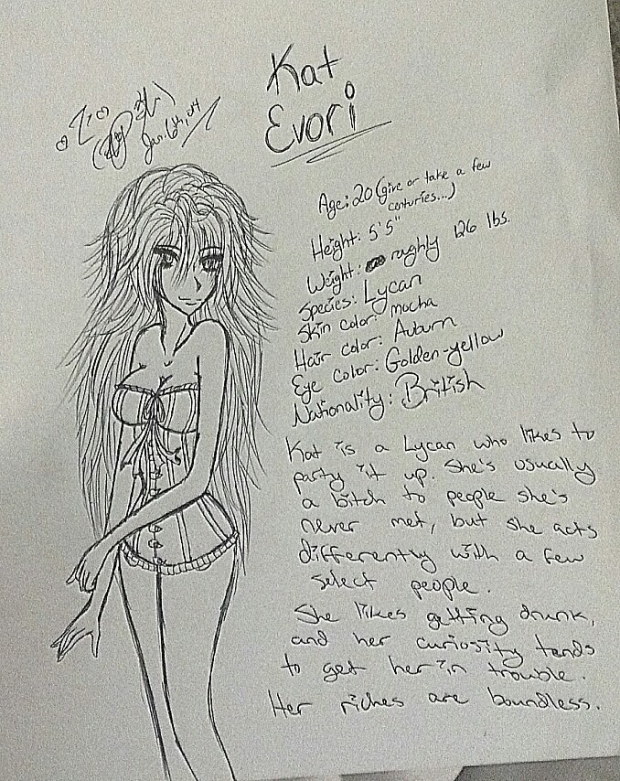 Kat
Evori
Jan. 6th, 04
Age: 20 (give or take a few
centuries...)
Height: 5'5"
Weight: roughly 126 lbs.
Species: Lycan
Skin color: mocha
Hair color: Auburn
Eye color: Golden-yellow
Nationality: British
Kat is a Lycan who likes to
party it up. She's usually
a bitch to people she's
never met, but she acts
differently with a few
select people.
She likes getting drunk,
and her curiosity tends
to get her in trouble.
Her riches are boundless.